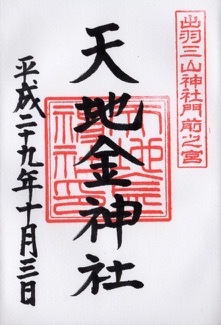 出羽三山神社門前之宮
天地金神社
平成二十九年十月三日